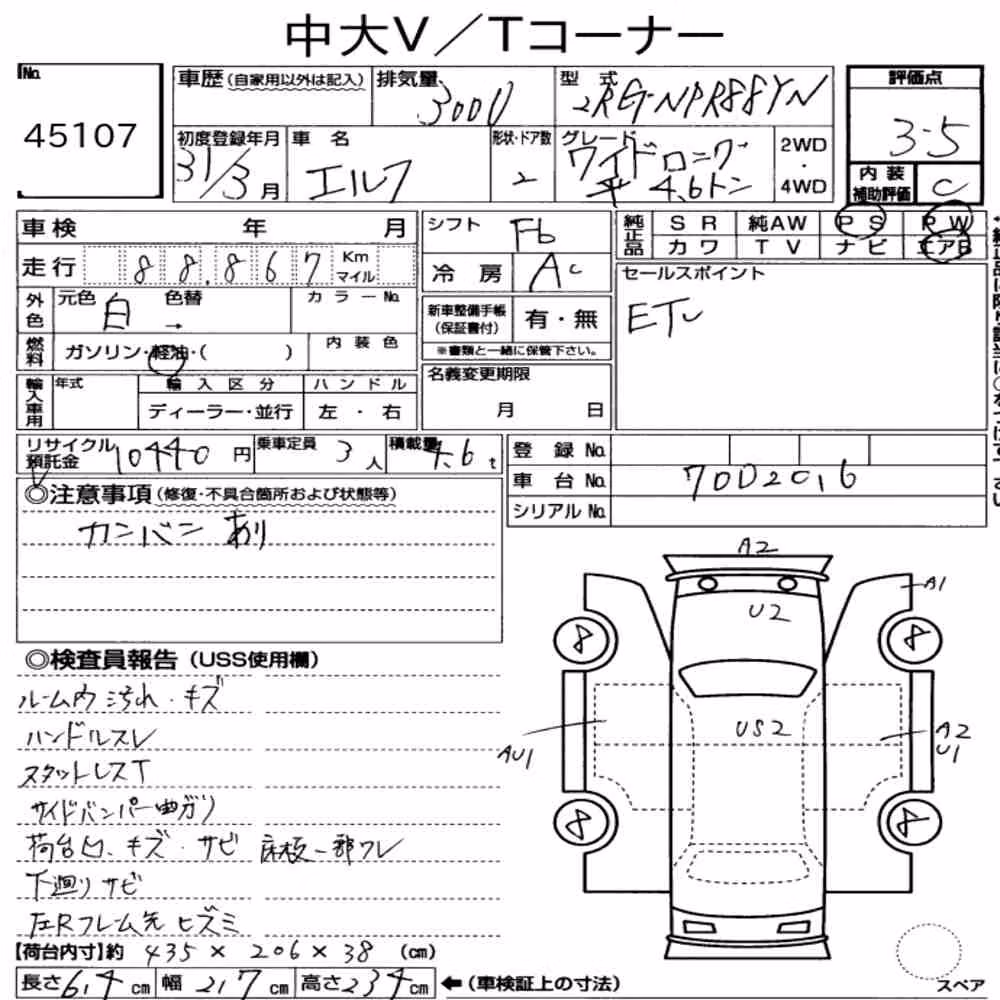 中大V／Tコーナー
No. 45107
車歴(自家用以外は記入) 排気量 3000 型式 2RG-NPR88YN 評価点 3.5
初度登録年月 31/3月 車名 エルフ 形状・ドア数 2 グレード ワイドロング 平 4.6トン 2WD・4WD 内装補助評価 C
車検 年 月 シフト F6 純正品 SR 純AW PS PW
走行 88,867 Km マイル 冷房 AC カワ TV ナビ エアB
外色 元色 白 色替 → カラーNo. 新車整備手帳(保証書付) 有・無 セールスポイント
ETC
燃料 ガソリン・軽油・( ) 内装色 ※書類と一緒に保管下さい。
輸入車用 年式 輸入区分 ハンドル 名義変更期限
ディーラー・並行 左・右 月 日
リサイクル預託金 10440円 乗車定員 3人 積載量 4.6t 登録No.
車台No. 7002016
シリアルNo.
◎注意事項(修復・不具合箇所および状態等)
カンバン あり
◎検査員報告(USS使用欄)
ルーム内汚れ・キズ
ハンドルスレ
スタットレスT
サイドバンパー曲ガリ
荷台凹、キズ・サビ 床板一部ワレ
下廻リサビ
左Rフレーム先ヒズミ
【荷台内寸】約 435×206×38 (cm)
長さ614cm 幅217cm 高さ234cm ←(車検証上の寸法)
A2
U2
A1
8
8
US2
AU1
A2
U1
8
8
スペア